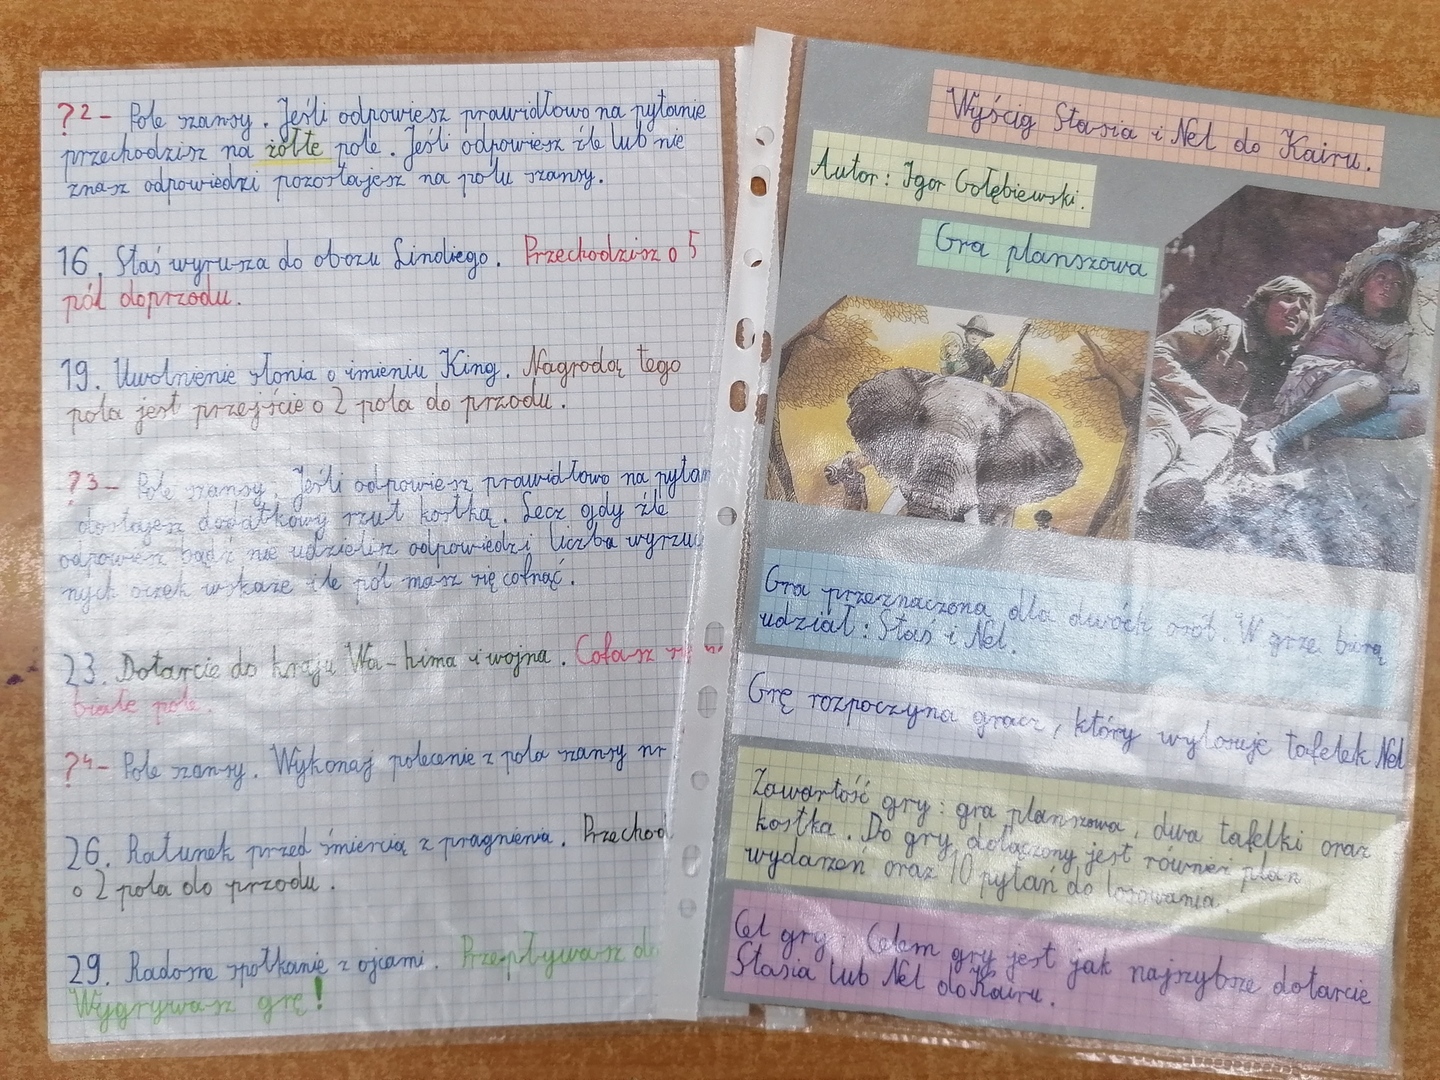 ?2 - Pole szansy. Jeśli odpowiesz prawidłowo na pytanie
przechodzisz na żółte pole. Jeśli odpowiesz źle lub nie
znasz odpowiedzi pozostajesz na polu szansy.
16. Staś wyrusza do obozu Lindiego. Przechodzisz o 5
pól doprzodu.
19. Uwolnienie słonia o imieniu King. Nagrodą tego
pola jest przejście o 2 pola do przodu.
?3 - Pole szansy. Jeśli odpowiesz prawidłowo na pytan
dostajesz dodatkowy rzut kostką. Lecz gdy źle
odpowiesz bądź nie udzielisz odpowiedzi liczba wyrzu
nych oczek wskaże ile pól masz się cofnąć.
23. Dotarcie do kraju Wa-hima i wojna. Cofasz
białe pole.
?4 - Pole szansy. Wykonaj polecenie z pola szansy nr
26. Ratunek przed śmiercią z pragnienia. Przechod
o 2 pola do przodu.
29. Radosne spotkanie z ojcami. Przepływasz do
Wygrywasz grę!
Wyścig Stasia i Nel do Kairu.
Autor: Igor Gołębiewski.
Gra planszowa
Gra przeznaczona dla dwóch osób. W grze biorą
udział: Staś i Nel.
Grę rozpoczyna gracz, który wylosuje tafelek Nel
Zawartość gry: gra planszowa, dwa tafelki oraz
kostka. Do gry dołączony jest również plan
wydarzeń oraz 10 pytań do losowania.
Cel gry: Celem gry jest jak najszybsze dotarcie
Stasia lub Nel do Kairu.